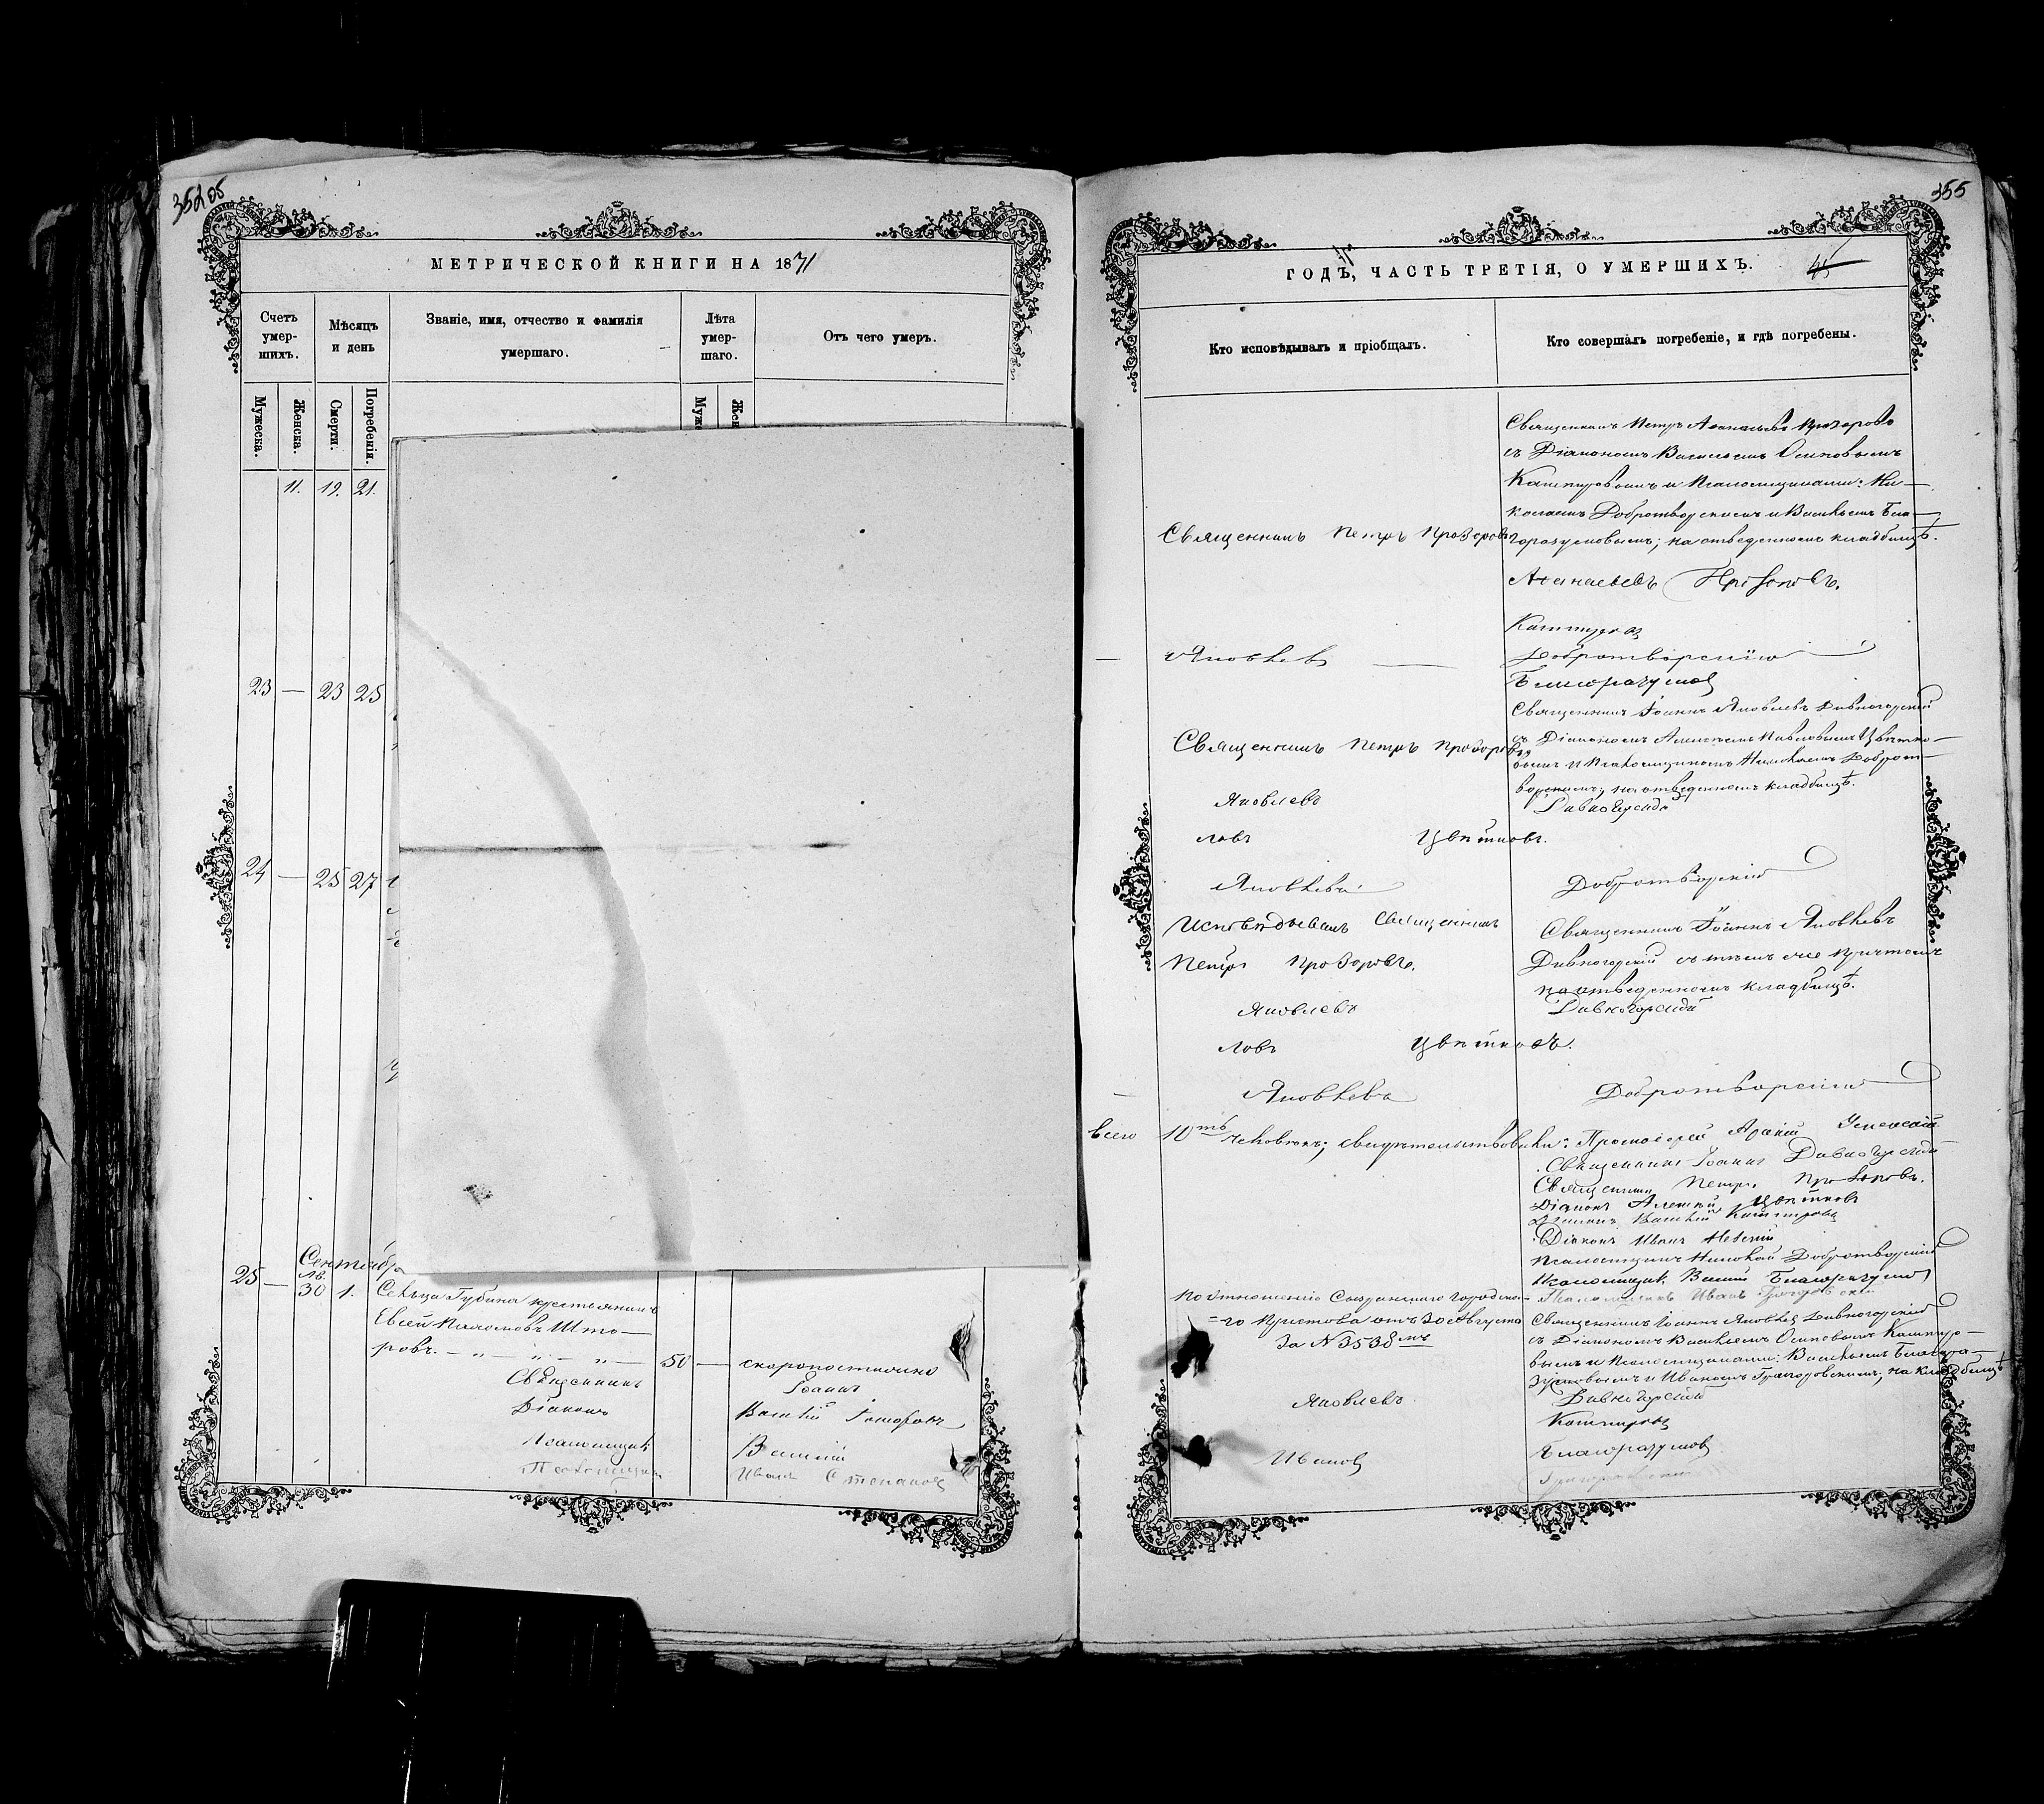 35205
МЕТРИЧЕСКОЙ КНИГИ НА 1871
Счетъ умер-шихъ.
Мѣсяцъ и день
Званіе, имя, отчество и фамилія умершаго.
Лѣта умер-шаго.
Отъ чего умеръ.
Мужеска.
Женска.
Смерти.
Погребенія.
Муже
Жен
11. 19. 21.
23 — 23 25
24 — 25 27
Сентября
25 — Ав. 30 1. Сельца Губина крестьянинъ
Евсей
ровъ. — „ — „ — „ — 50 — скоропостижно
Священникъ Іоаннъ
Діаконъ Василій
Псаломщикъ Василій
Псаломщикъ Иванъ Степановъ
355
ГОДЪ, ЧАСТЬ ТРЕТІЯ, О УМЕРШИХЪ.
45
Кто исповѣдывалъ и пріобщалъ.
Кто совершалъ погребеніе, и гдѣ погребены.
Священникъ Петръ Аѳанасьевъ Прозоровъ
съ Діакономъ Васильемъ Осиповымъ
Кашпировымъ и Псаломщиками: Ни-
колаемъ Добротворскимъ и Васильемъ Бла-
Священникъ Петръ Прозоровъ
горазумовымъ; на отведенномъ кладбищѣ.
Аѳанасьевъ Прозоровъ.
Кашпировъ
— Яковлевъ — Добротворскій
Благоразумовъ
Священникъ Іоаннъ Яковлевъ Дивногорскій
Священникъ Петръ Прозоровъ
съ Діакономъ Алексѣемъ Павловымъ Цвѣтко-
вымъ и Псаломщикомъ Николаемъ Доброт-
ворскимъ; на отведенномъ кладбищѣ.
Яковлевъ Дивногорскій
ловъ Цвѣтковъ.
Яковлевъ Добротворскій
Исповѣдывалъ Священникъ
Петръ Прозоровъ.
Священникъ Іоаннъ Яковлевъ
Дивногорскій съ тѣмъ же причтомъ
на отведенномъ кладбищѣ.
Яковлевъ Дивногорскій
ловъ Цвѣтковъ.
— Яковлевъ Добротворскій
всего 10ть человѣкъ; свидѣтельствовали: Протоіерей Успенскій
Священникъ Іоаннъ Дивногорскій
Священникъ Петръ Прозоровъ.
Діаконъ Алексѣй Цвѣтковъ
Діаконъ Василій Кашпировъ
Діаконъ Иванъ Невскій
Псаломщикъ Николай Добротворскій
Псаломщикъ Василій Благоразумовъ
Псаломщикъ Иванъ Григоровскій
По отношенію Сызранскаго городска-
го Пристава отъ 30 Августа
За N 3538мъ
Священникъ Іоаннъ Яковлевъ Дивногорскій
съ Діакономъ Васильемъ Осиповымъ Кашпиро-
вымъ и Псаломщиками: Васильемъ Благора-
зумовымъ и Иваномъ Григоровскимъ; на кладбищѣ
Яковлевъ Дивногорскій
Кашпировъ
Ивановъ Благоразумовъ
Григоровскій